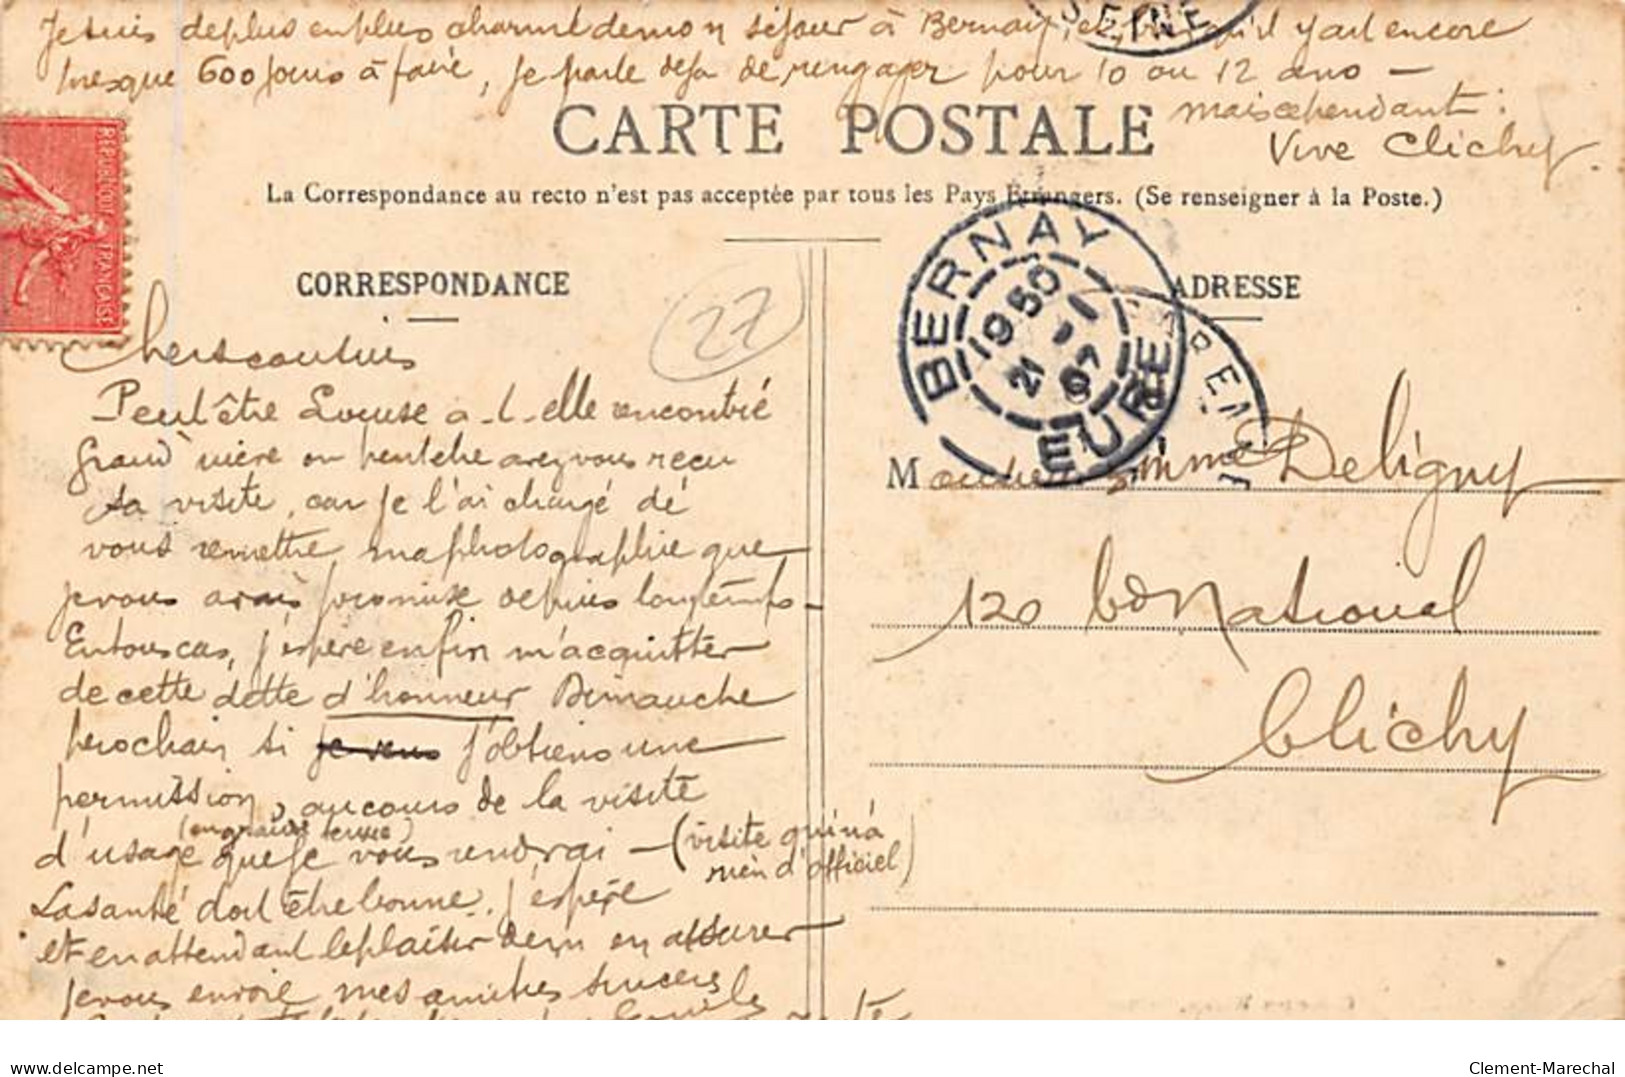 Je suis de plus en plus charmé de mon séjour à Bernay, et qu'il y ait encore
presque 600 jours à faire, je parle déjà de rengager pour 10 ou 12 ans —
mais cependant :
Vive Clichy.
SEINE
CARTE POSTALE
La Correspondance au recto n'est pas acceptée par tous les Pays Étrangers. (Se renseigner à la Poste.)
REPUBLIQUE FRANÇAISE
CORRESPONDANCE
27
Chers cousins
Peut être Louise a-t-elle rencontré
Grand'mère ou peut être avez vous reçu
sa visite, car je l'ai chargé de
vous remettre ma photographie que
je vous avais promise depuis longtemps —
En tous cas, j'espère enfin m'acquitter
de cette dette d'honneur Dimanche
prochain si je vous j'obtiens une
permission, au cours de la visite
(en grande tenue)
d'usage que je vous rendrai — (visite qui n'a
rien d'officiel)
La santé doit être bonne. j'espère
et en attendant le plaisir de m'en assurer
je vous envoie mes amitiés sincères
BERNAY
19 50
21 -1
07
EURE
ADRESSE
M Mme Deligny
120 Bd National
Clichy
Clement-Marechal